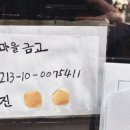 마을금고
213-10-0075411
진